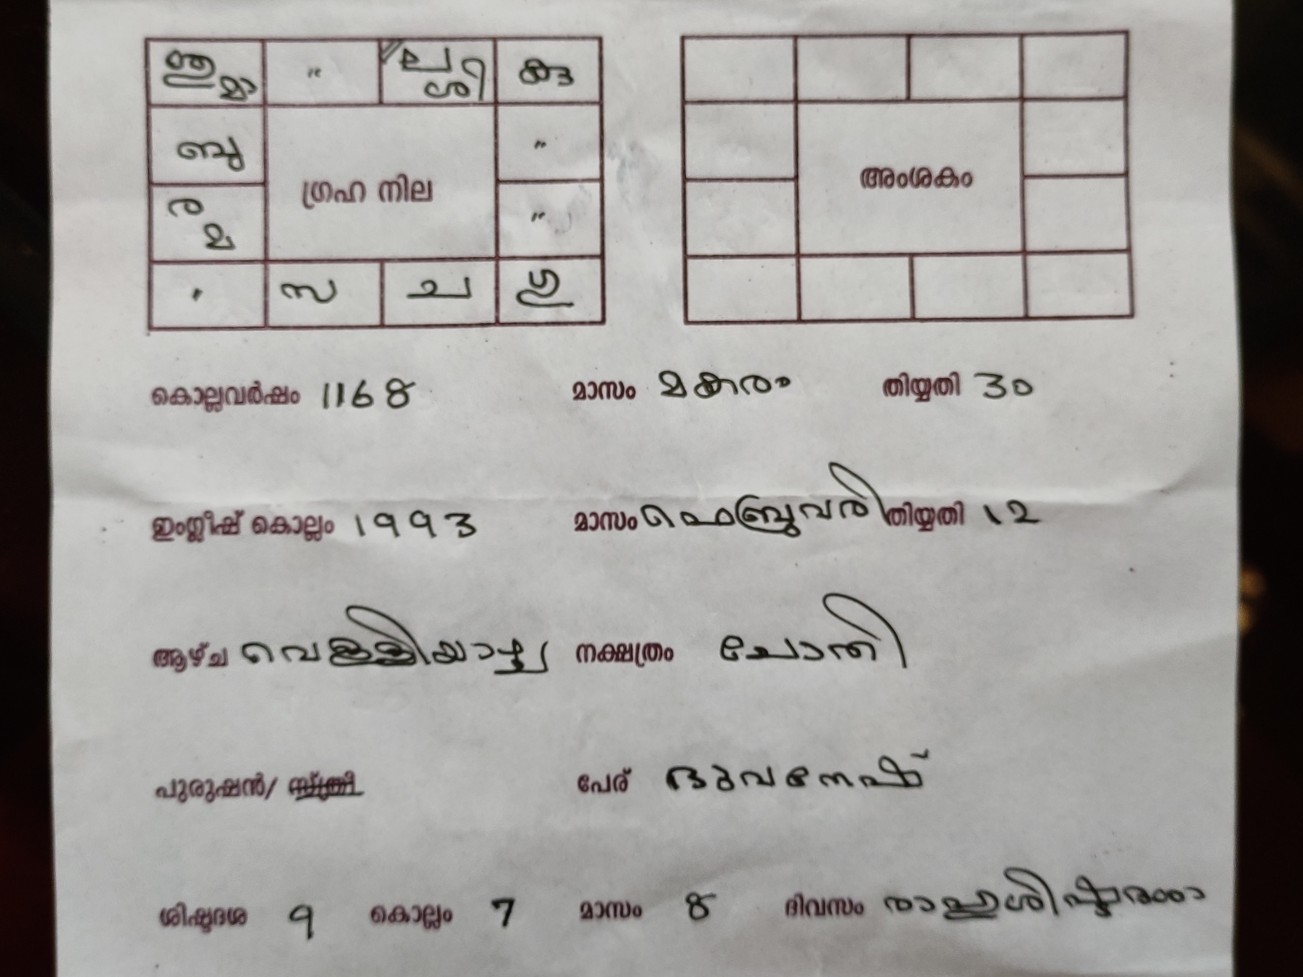 ല ശി കു
ബു
ഗ്രഹ നില
അംശകം
ര മ
സ ച ഗു
കൊല്ലവർഷം 1168 മാസം മകരം തിയ്യതി 30
ഇംഗ്ലീഷ് കൊല്ലം 1993 മാസം ഫെബ്രുവരി തിയ്യതി 12
ആഴ്ച വെള്ളിയാഴ്ച നക്ഷത്രം ചോതി
പുരുഷൻ/ സ്ത്രീ പേര് ഭുവനേഷ്
ശിഷ്ടദശ 9 കൊല്ലം 7 മാസം 8 ദിവസം